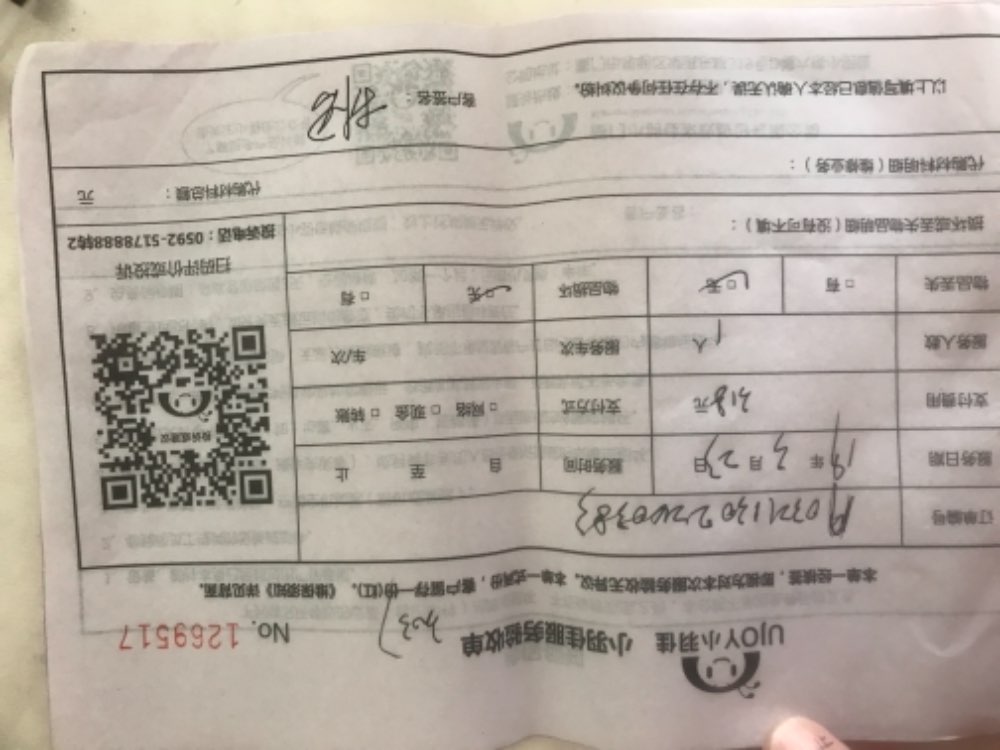 UJOY小羽佳 小羽佳服务验收单 No. 1269517
本单一经核签，即视为对本次服务验收无异议。本单一式两份，客户留存一份(红)。《维保须知》详见背面。
订单编号
服务日期 19 年 3 月 23 日 服务时间 自 至 止
支付费用 318 元 支付方式 □ 网络 □ 现金 □ 转账
服务人数 1 人 服务车次 车/次
物品丢失 □ 有 □ 无 物品损坏 □ 无 □ 有
扫码评价或投诉
投诉电话：0592-5178888转2
损坏或丢失物品明细（没有可不填）：
代购材料明细（维修业务）： 代购材料总额： 元
以上填写信息已经本人确认无误，不存在任何争议纠纷。 客户签名：